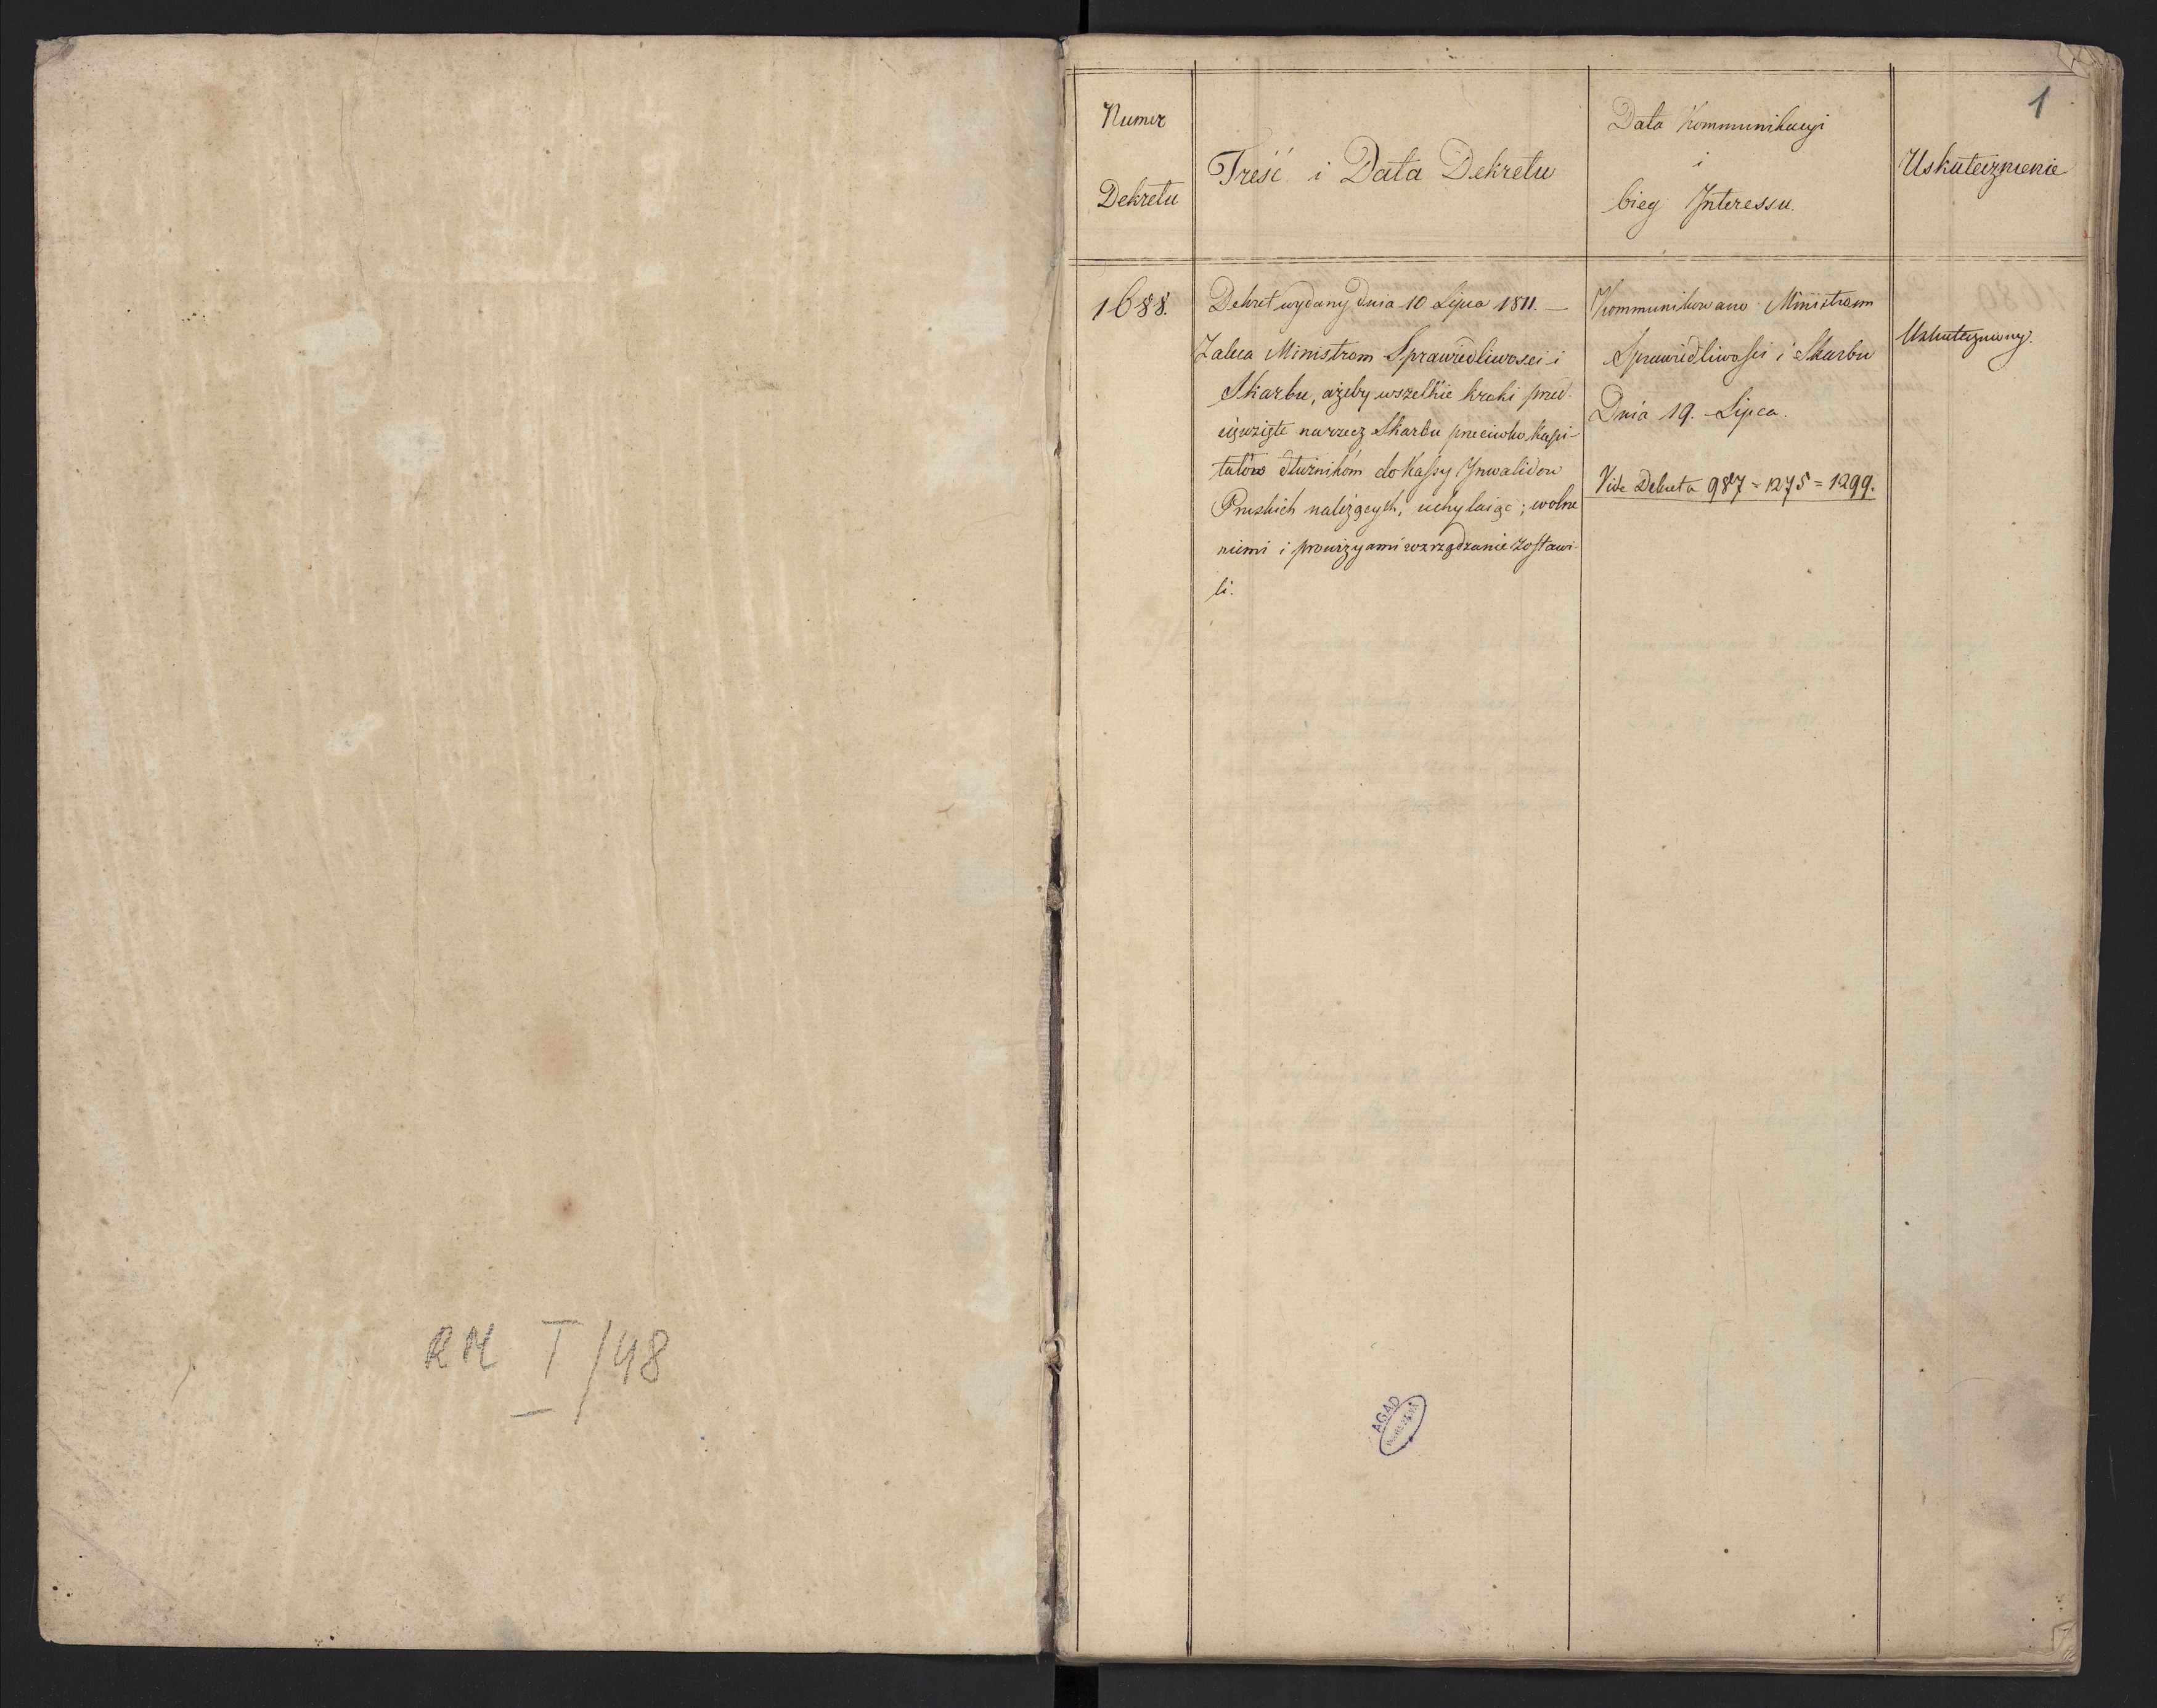 RM I/48
1
Numer
Dekretu
Treść i Data Dekretu
Data Kommunikacyi
i
bieg Interessu.
Uskutecznienie
1688.
Dekret wydany dnia 10 Lipca 1811. —
Zaleca Ministrom Sprawiedliwosci i
Skarbu, ażeby wszelkie kroki przed-
sięwzięte na rzecz Skarbu przeciwko Kapi-
tałów dłużnikóm do Kassy Inwalidow
Pruskich należących, uchylaiąc; wolne
niemi i prowizyami rozrządzanie zostawi-
li.
Kommunikowano Ministrom
Sprawiedliwości i Skarbu
Dnia 19. Lipca.
Vide Dekreta 987 = 1275 = 1299.
Uskuteczniony.
AGAD